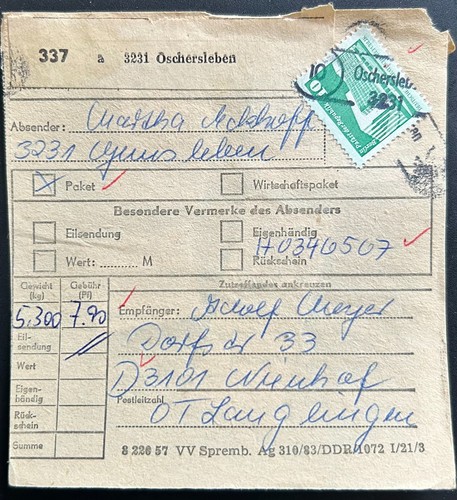 337 a 3231 Oschersleben
10 Oschersleb
3231
Berlin, Palast der Republik
Absender: Martha
3231
X Paket Wirtschaftspaket
Besondere Vermerke des Absenders
Eilsendung Eigenhändig
Wert: .......... M Rückschein
H0346507
Zutreffendes ankreuzen
Gewicht (kg) Gebühr (Pf)
5,300 7.90
Empfänger: Adolf Meyer
Eilsendung
Dorfstr 33
Wert
D3101 Nienhof
Eigenhändig
Postleitzahl
OT Langlingen
Rückschein
Summe
8 220 57 VV Spremb. Ag 310/83/DDR/1072 I/21/3